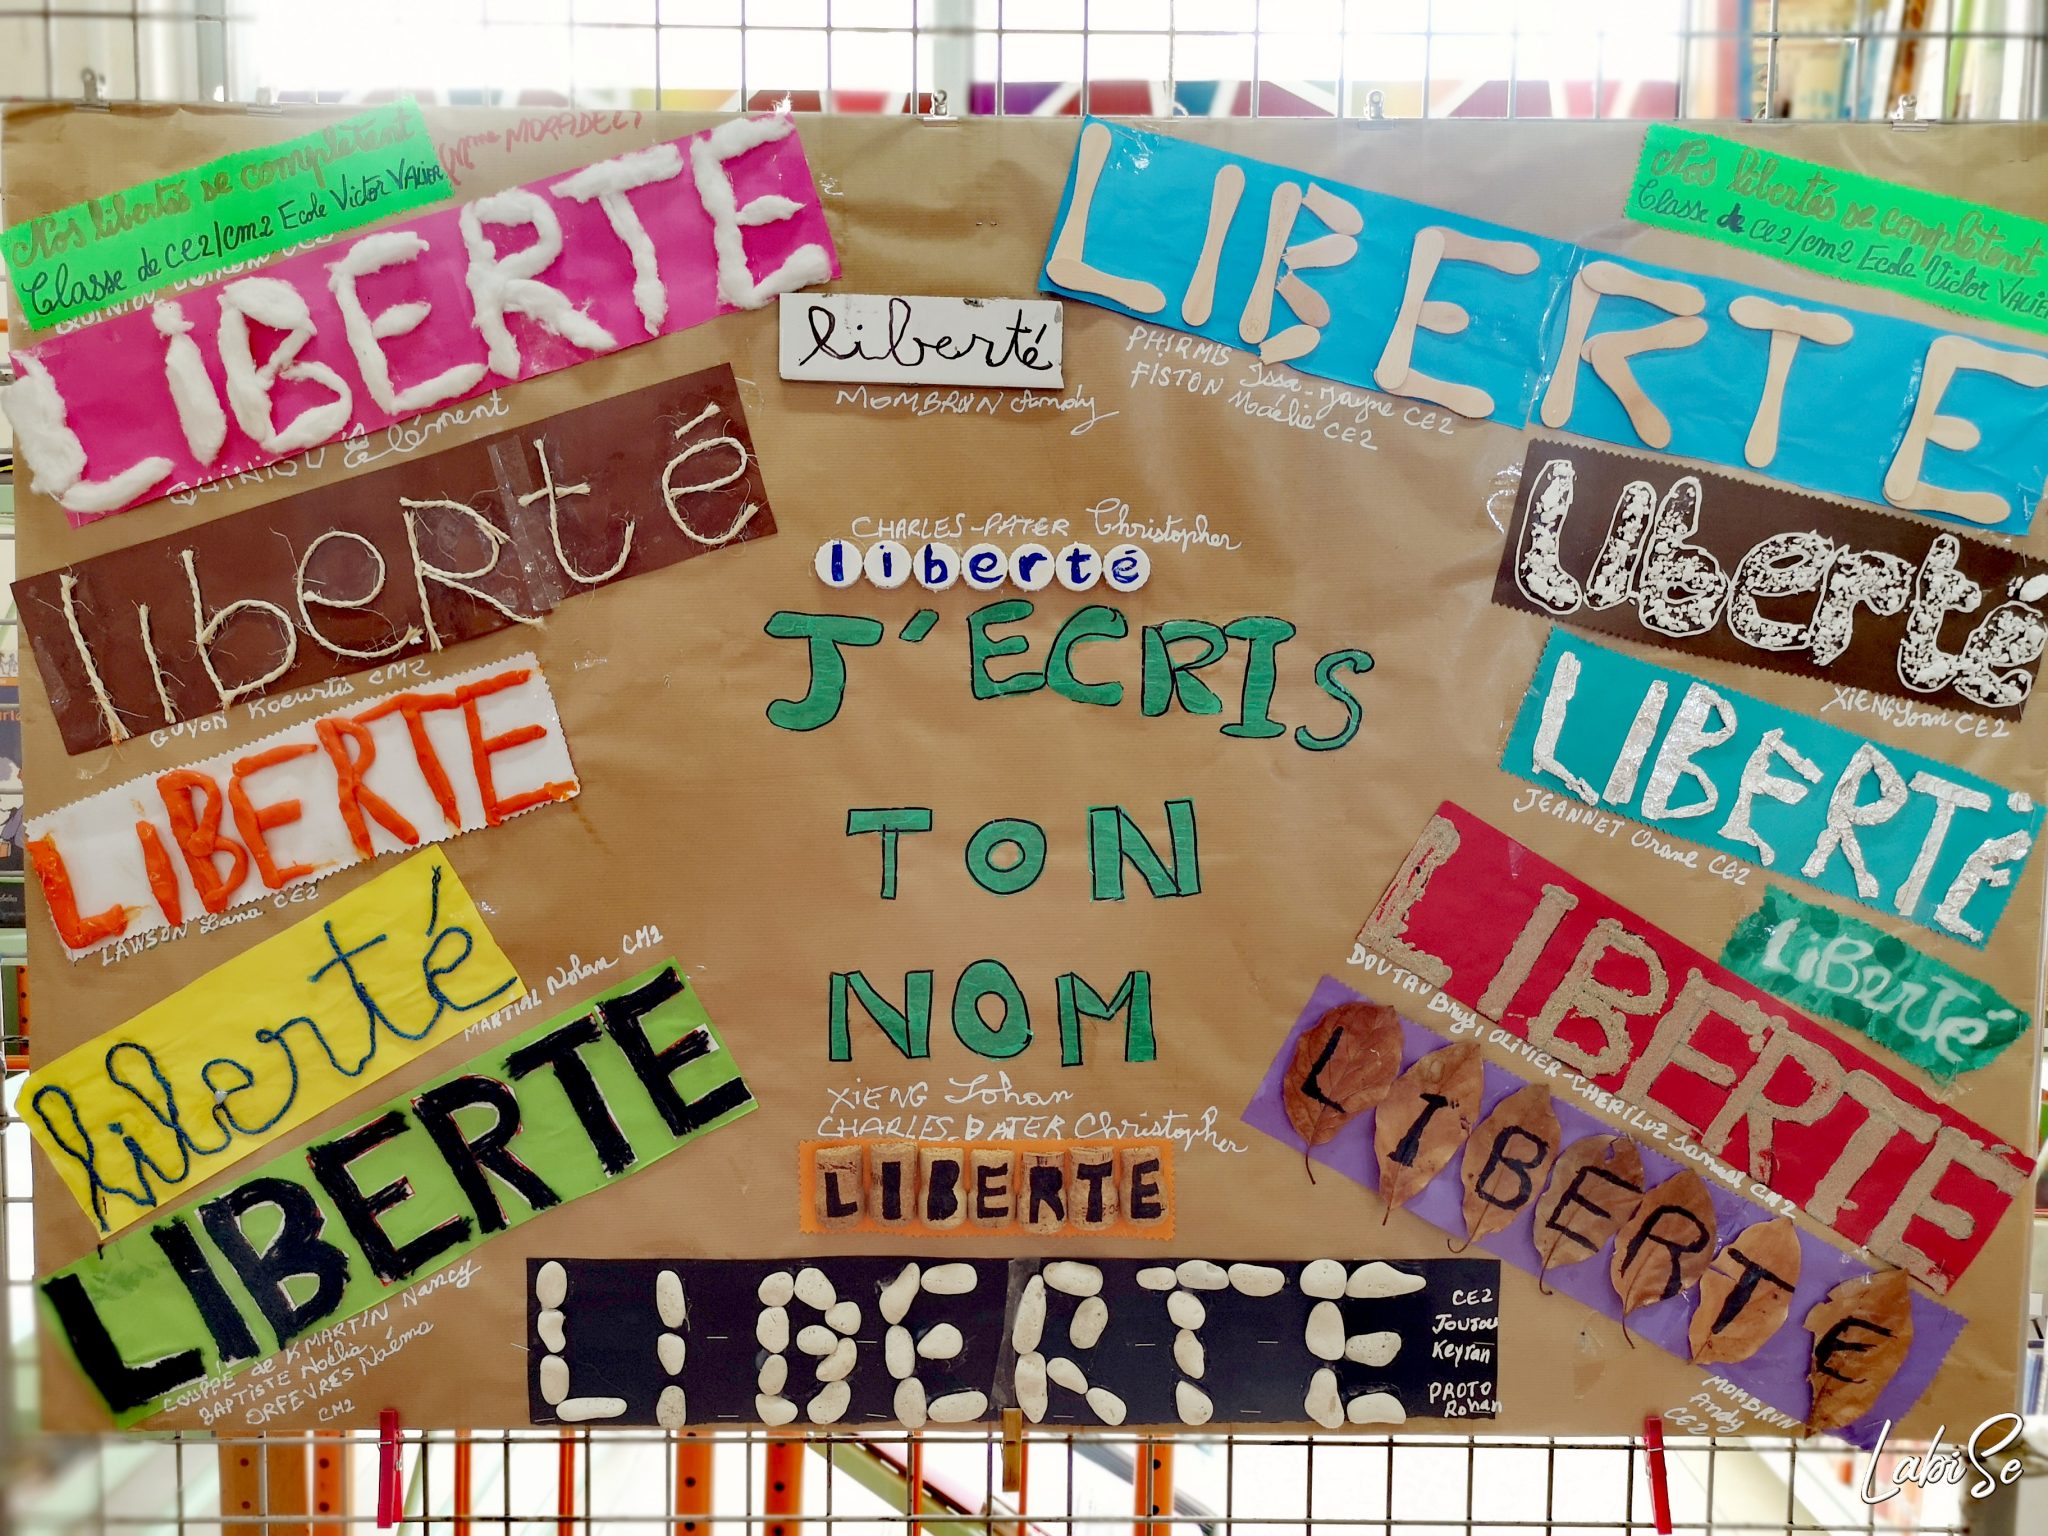 Nos libertés se complètent
Classe de CE2/CM2 Ecole Victor VALIER
Mme MORADEL
LIBERTE
QUINIQUIS Clément
liberté
GUYON Koeurtis CM2
LIBERTE
LAWSON Lana CE2
liberté
MARTIAL Nohan CM2
LIBERTE
COUPPE de K MARTIN Nancy
BAPTISTE Noélia
ORFEVRES Naéma
CM2
liberté
MOMBRUN Andy
CHARLES-PATER Christopher
liberté
J'ECRIS
TON
NOM
XIENG Johan
CHARLES-PATER Christopher
LIBERTE
LIBERTE
CE2
JOUJOU
Keyran
PROTO
Rohan
LIBERTE
PHIRMIS Issa-Jayne CE2
FISTON Maélie CE2
Nos libertés se complètent
Classe de CE2/CM2 Ecole Victor VALIER
Liberté
XIENG Yoan CE2
LIBERTÉ
JEANNET Orane CE2
LiBerté
LIBERTE
DOUTAU Brys, OLIVIER-CHERILUZ Samuel CM2
LIBERTE
MOMBRUN
Andy
CE2
LabiSe